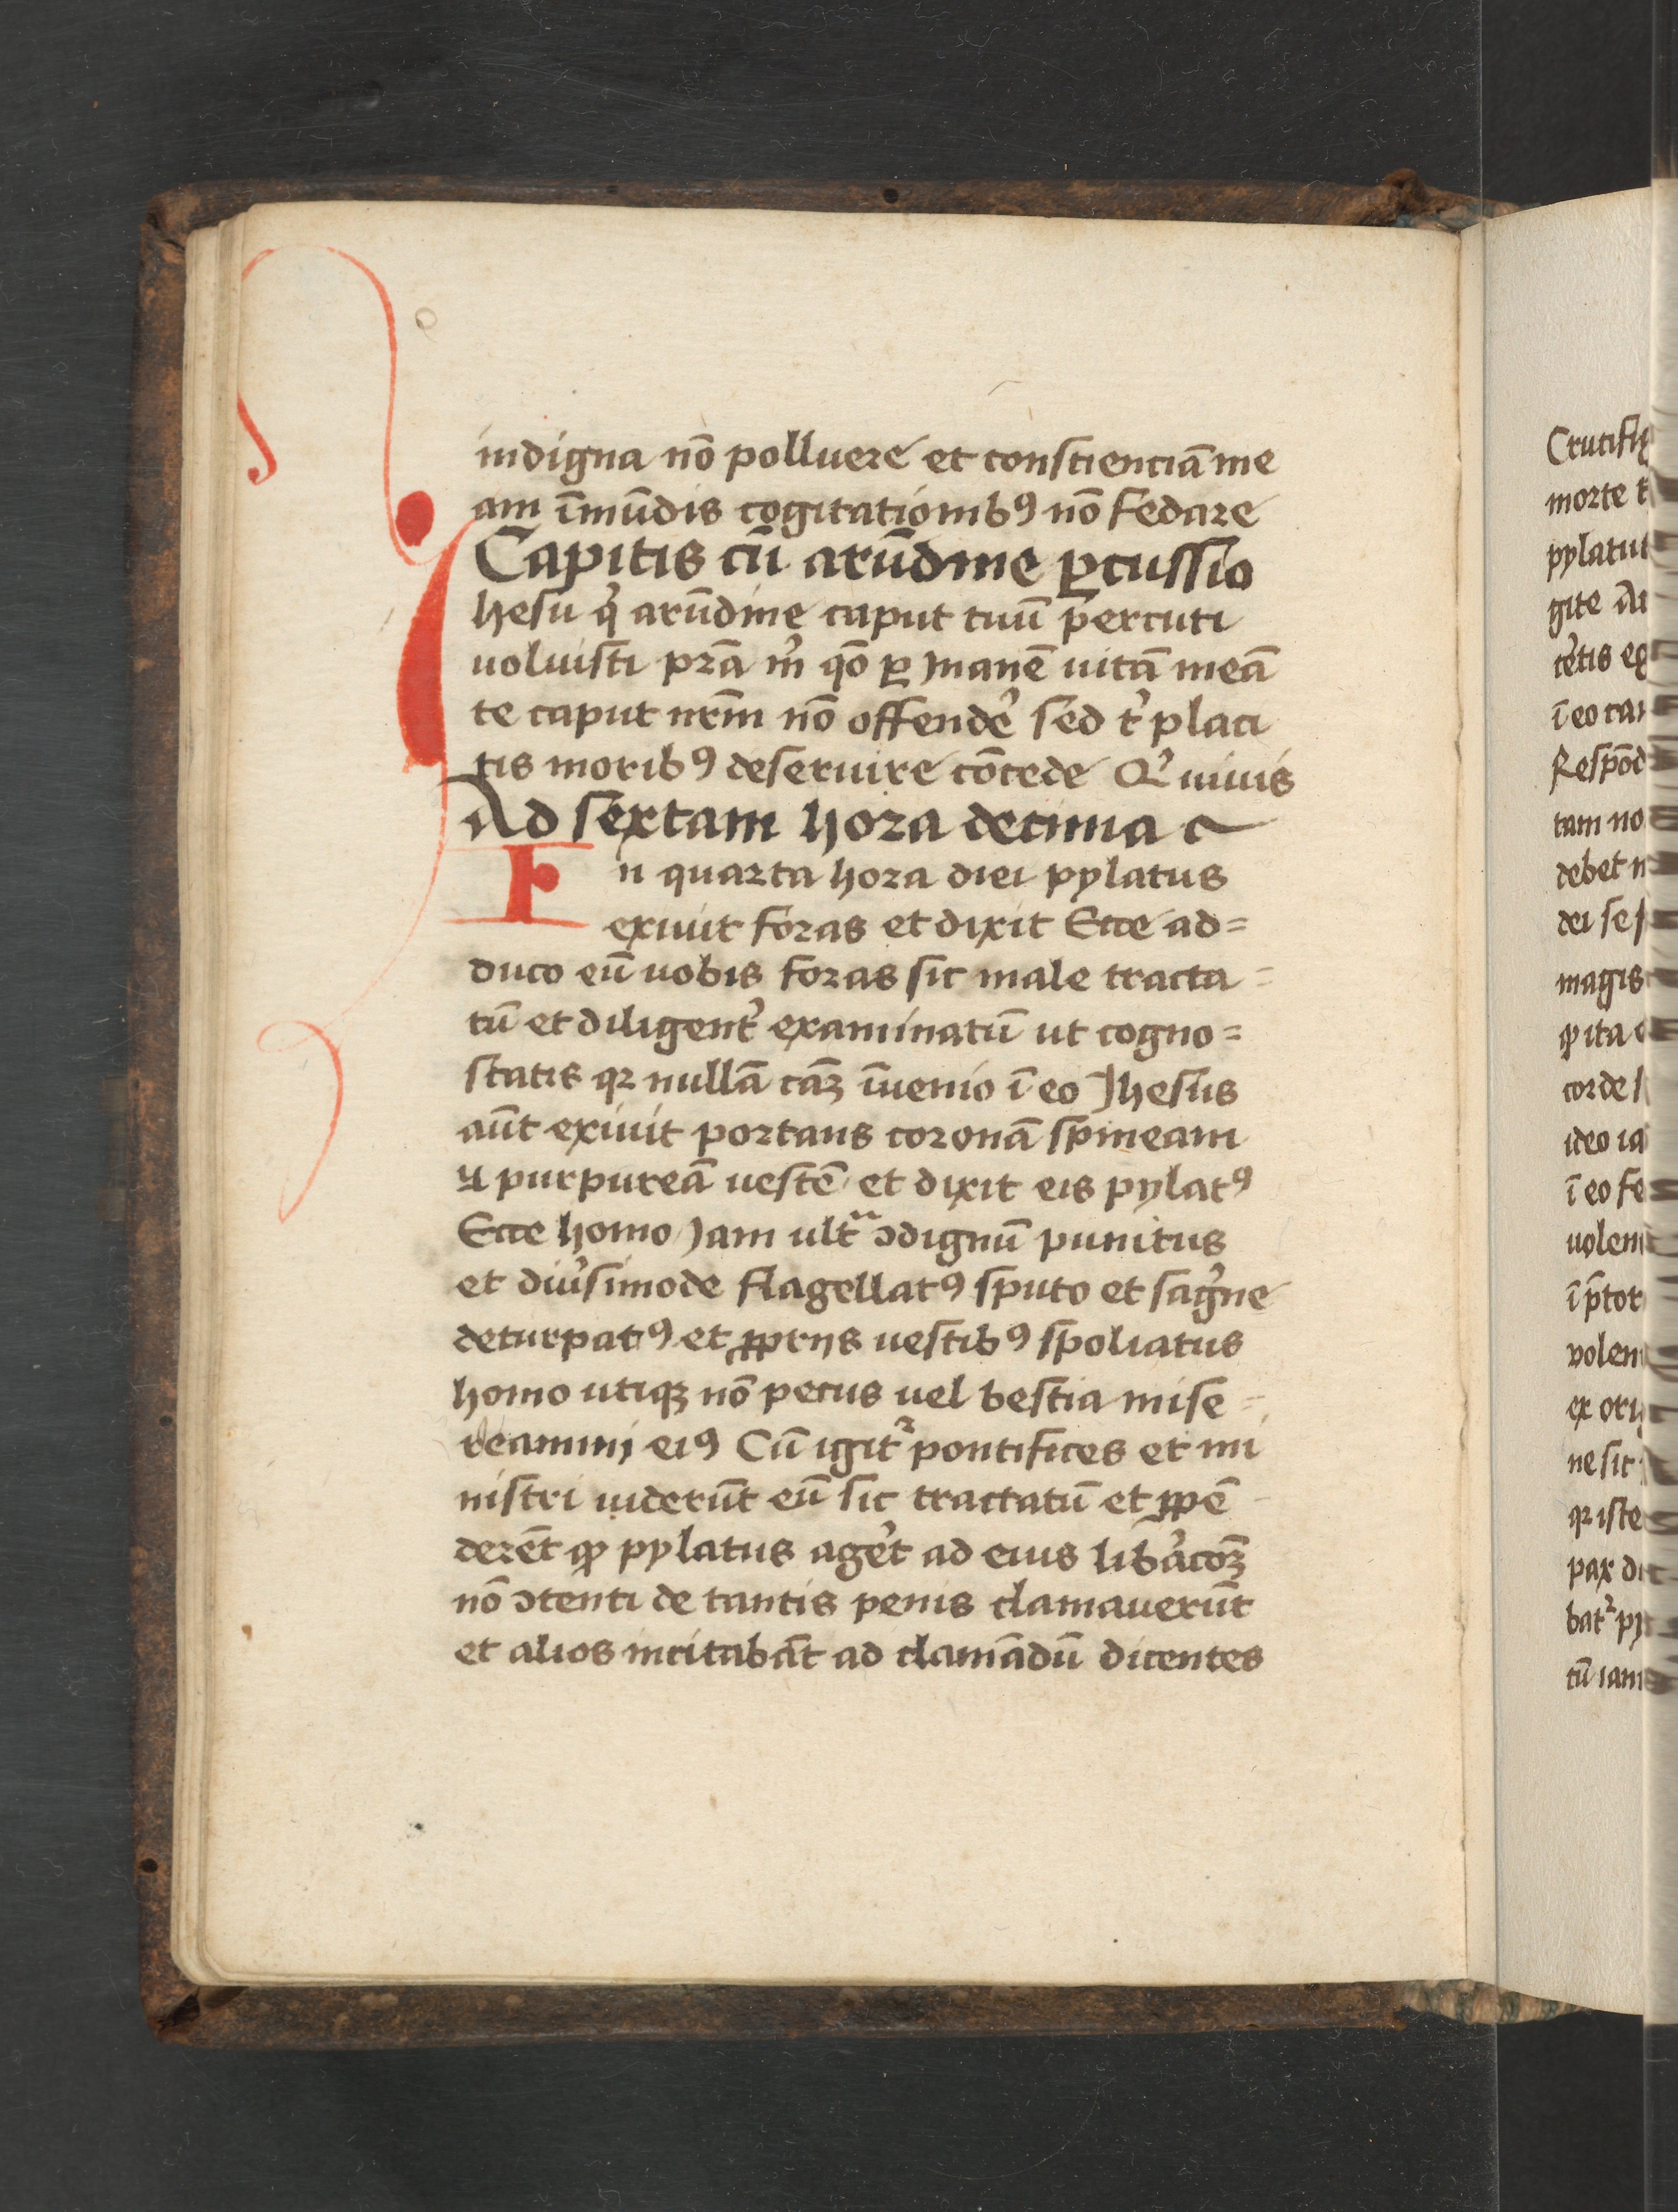 indigna nō polluere et consciencīa me
am īmūdis cogitationibꝯ nō fedare
Capitis cū arūdine ꝑcussio
Ihesu qͥ arūdine caput tuū percuti
uoluisti prā m̄ qō ꝑ Inanē uitā meā
te caput nrm̄ nō offendeͬ sed tͥ placi
tis moribꝯ deseruire cōcede Qͥ uiuis
Ad sextam hora decima
In quarta hora diei pylatus
exiuit foras et dixit Ecce ad=
duco eū uobis foras sic male tracta=
tū et diligentͬ examinatū ut cogno=
scatis qꝛ nullā caꝫ īuenio ī eo Ihesus
aūt exiuit portans coronā spineam
⁊ purpureā uestē et dixit eis pylatꝯ
Ecce homo Iam ultͣ ↄdignū punitus
et diuͬsimode flagellatꝯ sputo et sāgͥne
deturpatꝯ et ꝓprijs uestibꝯ spoliatus
homo utiqꝫ nō pecus uel bestia mise=
reamini eiꝯ Cū igitꝛ pontifices et mi
nistri uiderūt eū sic tractatū et ꝓpē
derēt ꝙ pylatus ageͬt ad eius libͬacōꝫ
nō ↄtenti de tantis penis clamauerūt
et alios incitabāt ad clamādū dicentes
Crucifi
morte
pylatu
gite
ī eo
Respōd
tam no
debet
dei se
magis
ita
corde
ideo
ī eo
uolen
uolen
ex ori
ne sic
qꝛ iste
pax
batꝛ
tū iam